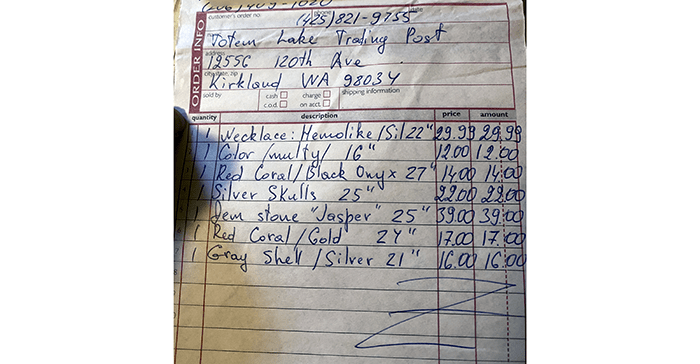 customer's order no. phone date
(425)821-9755
Totem Lake Trading Post
address
12556 120th Ave
city, state, zip
Kirkland WA 98034
ORDER INFO
sold by cash charge shipping information
c.o.d. on acct.
quantity description price amount
1 Necklace: Hemolike/Sil 22" 29.99 29.99
1 Color/multy/ 16" 12.00 12.00
1 Red Coral/Black Onyx 27" 14.00 14.00
1 Silver Skulls 25" 22.00 22.00
1 Jem stone "Jasper" 25" 39.00 39.00
1 Red Coral/Gold 24" 17.00 17.00
1 Gray Shell/Silver 21" 16.00 16.00